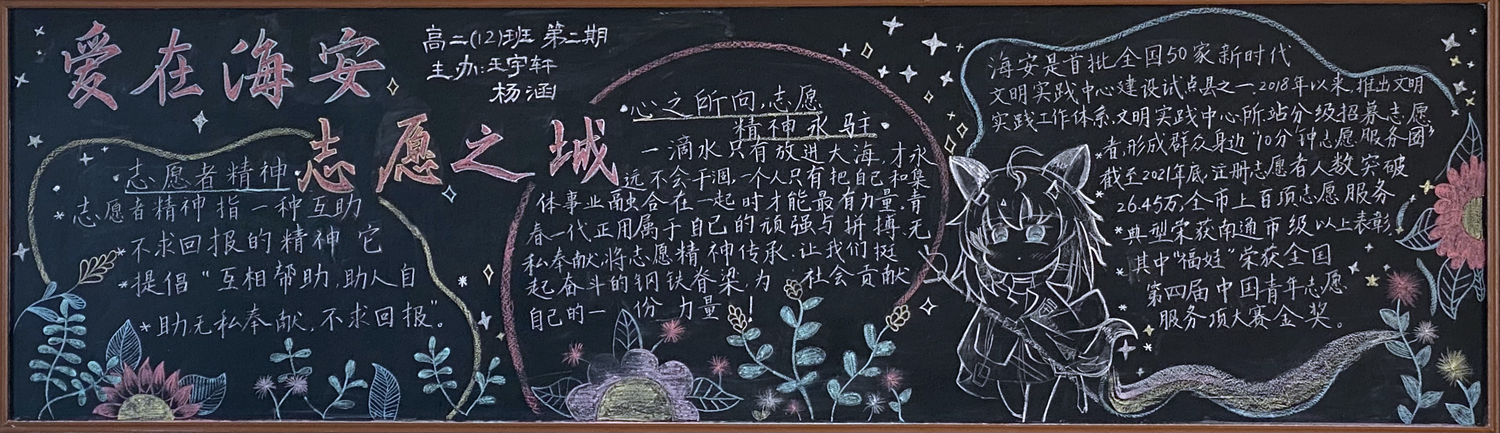 爱在海安
志愿之城
高二(12)班 第二期
主办:王宇轩
杨涵
志愿者精神
志愿者精神指一种互助
*不求回报的精神 它
*提倡“互相帮助,助人自
*助无私奉献,不求回报”。
心之所向,志愿
精神永驻
一滴水只有放进大海,才永
远不会干涸,一个人只有把自己和集
体事业融合在一起时才能最有力量,青
春一代正用属于自己的顽强与拼搏,无
私奉献,将志愿精神传承,让我们挺
起奋斗的钢铁脊梁,为社会贡献
自己的一份力量!
海安是首批全国50家新时代
文明实践中心建设试点县之一,2018年以来,推出文明
实践工作体系,文明实践中心、所、站分级招募志愿
*者,形成群众身边“10分钟志愿服务圈”
截至2021年底,注册志愿者人数突破
*26.45万,全市上百项志愿服务
*典型荣获南通市级以上表彰,
*其中“福娃”荣获全国
第四届中国青年志愿
服务项大赛金奖。